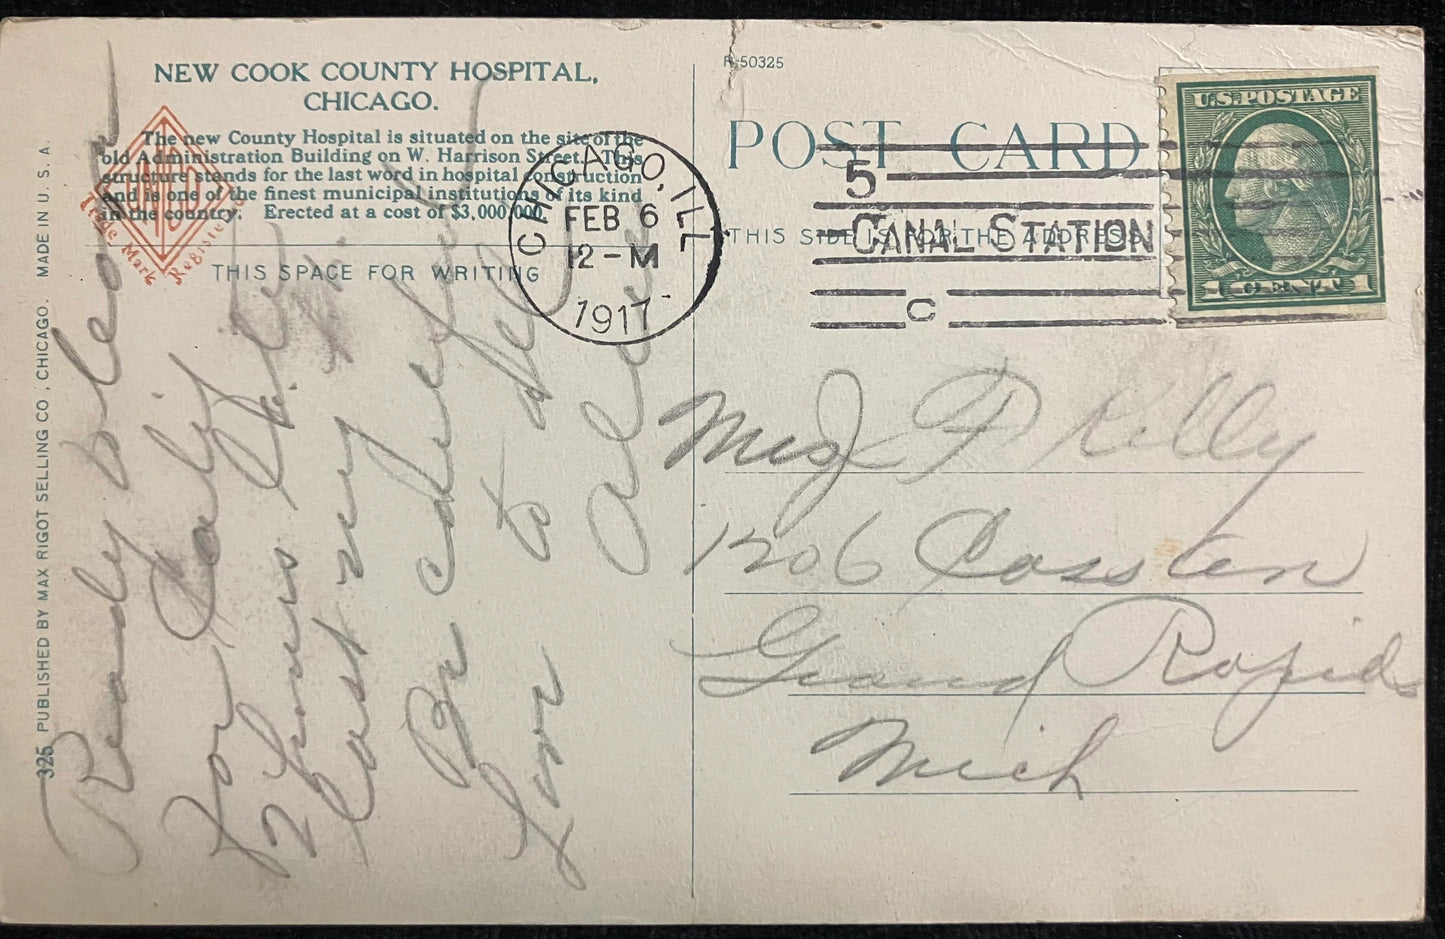 NEW COOK COUNTY HOSPITAL,
CHICAGO.
The new County Hospital is situated on the site of the
old Administration Building on W. Harrison Street. This
structure stands for the last word in hospital construction
and is one of the finest municipal institutions of its kind
in the country. Erected at a cost of $3,000,000.
Trade Mark Registered
THIS SPACE FOR WRITING
325 PUBLISHED BY MAX RIGOT SELLING CO., CHICAGO. MADE IN U. S. A.
Ready to leave
for Calif
time
last
Be
love to all
R-50325
POST CARD
THIS SIDE IS FOR THE ADDRESS
CHICAGO, ILL
FEB 6
12-M
1917
5
CANAL STATION
C
U.S. POSTAGE
1 CENT 1
Miss F Kelly
1206
Grand Rapids
Mich